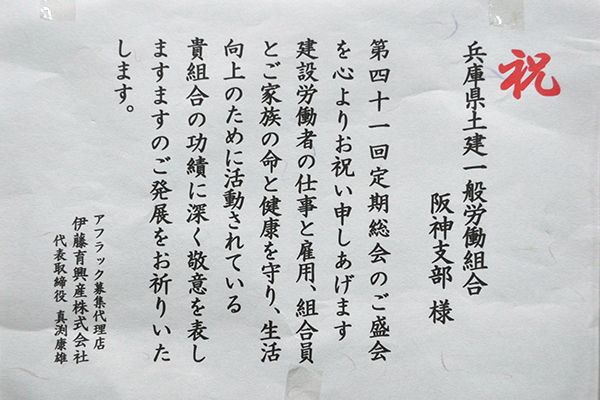 祝
兵庫県土建一般労働組合
阪神支部 様
第四十一回定期総会のご盛会
を心よりお祝い申しあげます
建設労働者の仕事と雇用、組合員
とご家族の命と健康を守り、生活
向上のために活動されている
貴組合の功績に深く敬意を表し
ますますのご発展をお祈りいた
します。
アフラック募集代理店
伊藤育興産株式会社
代表取締役 真渕康雄